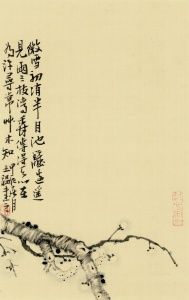 微雪初消半月池籬邊遥
見兩三枝清香傳得天心在
未許尋常艸木知